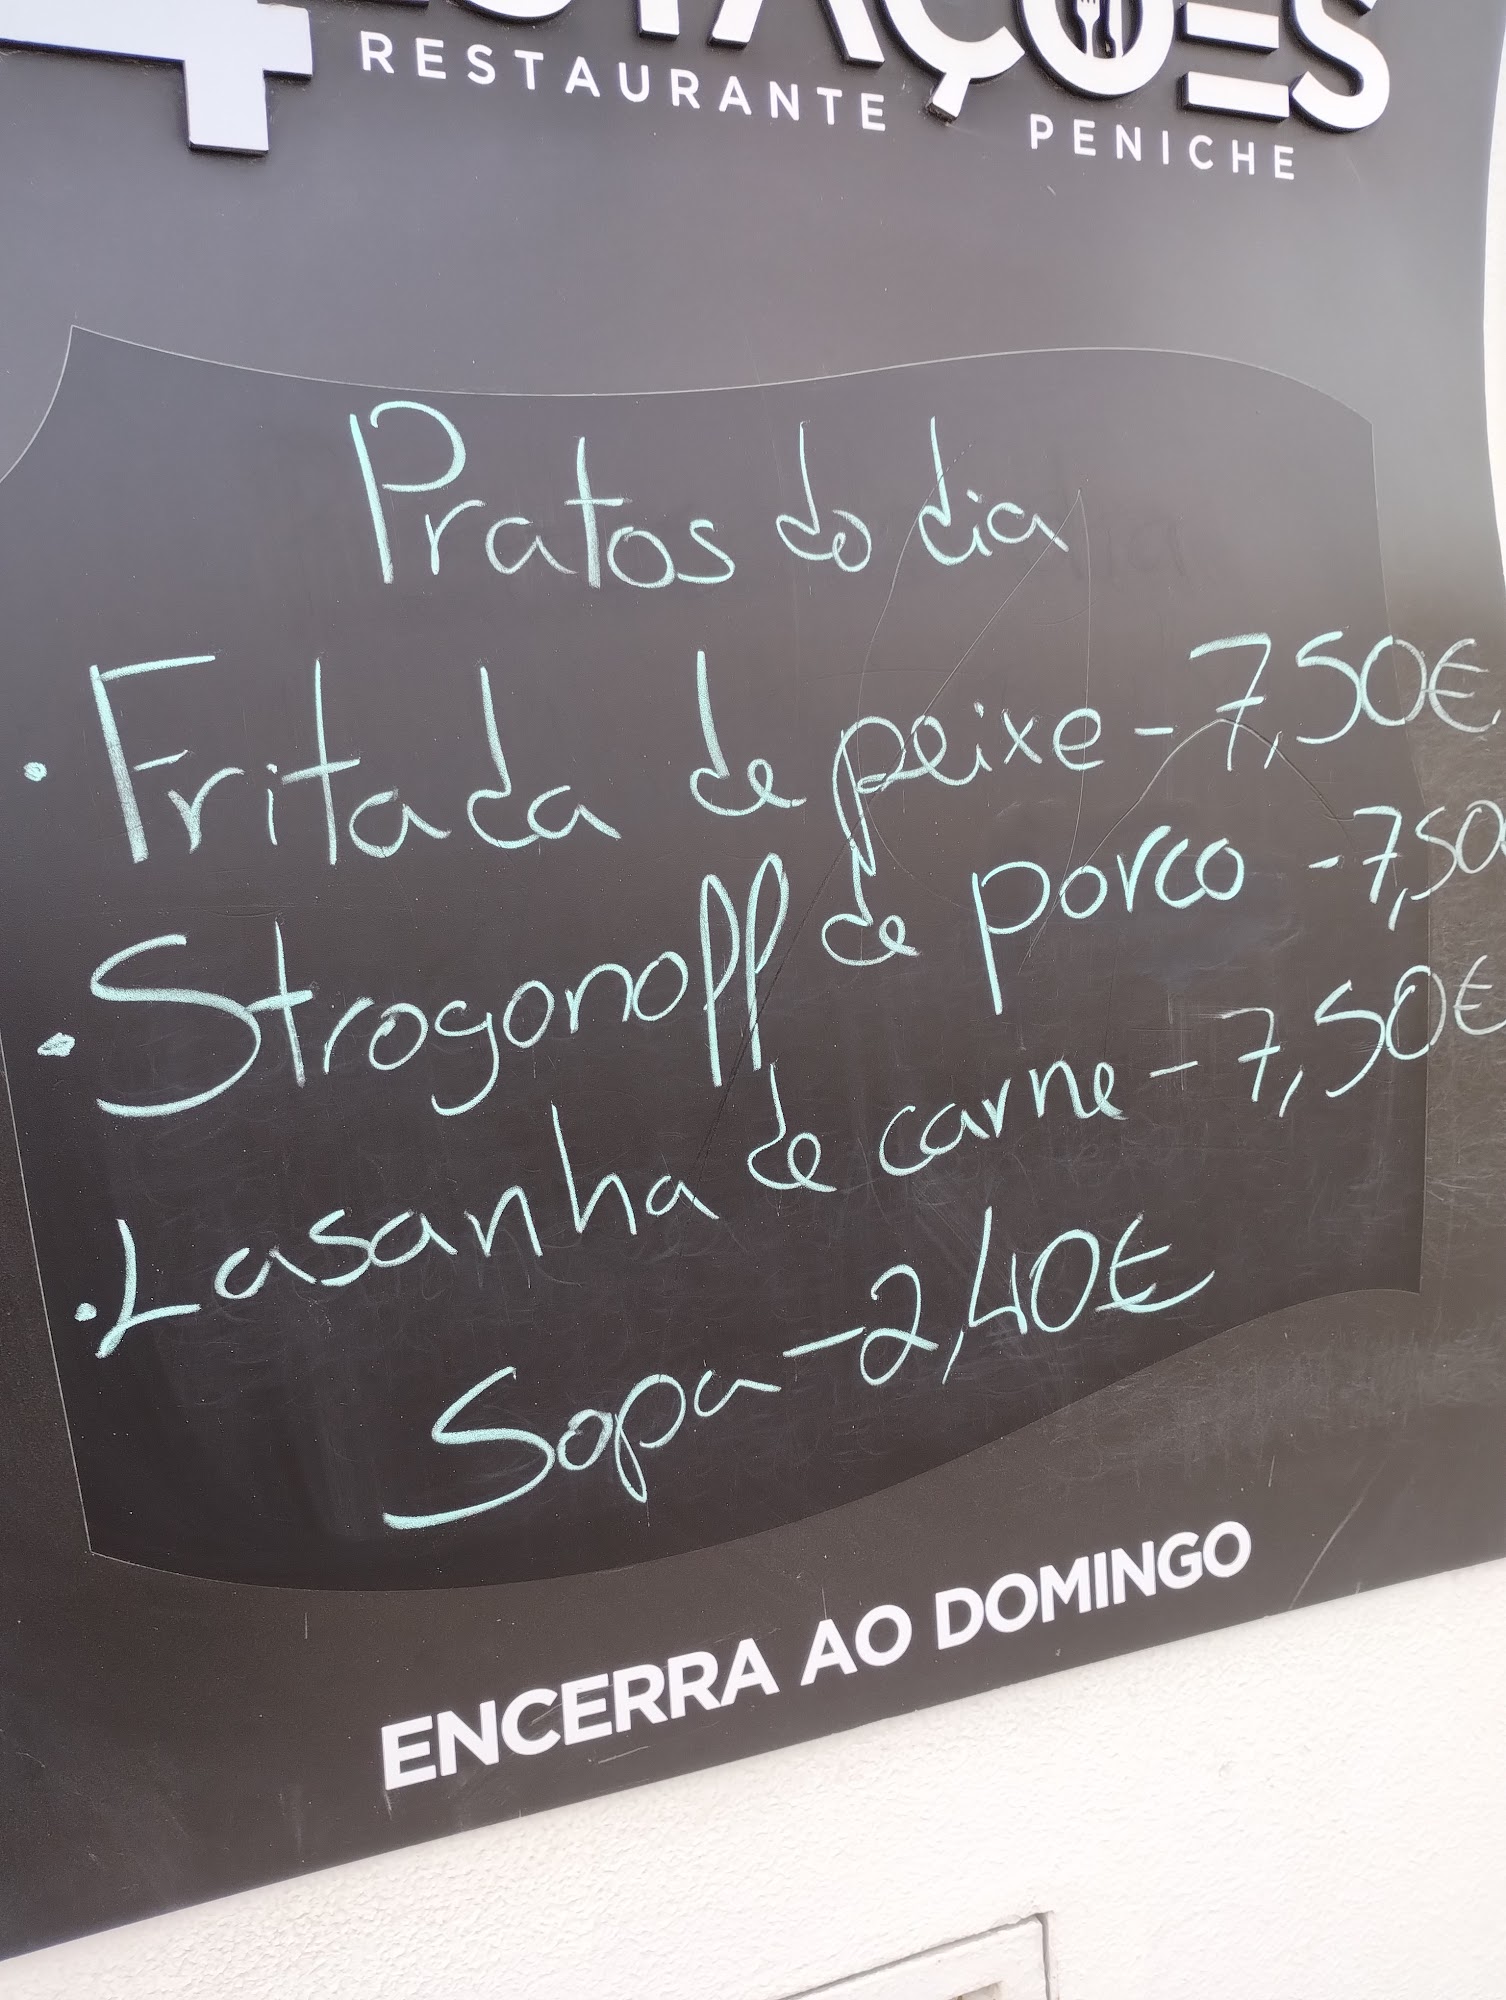 4 ESTAÇÕES
RESTAURANTE PENICHE
Pratos do dia
· Fritada de peixe - 7,50€
· Strogonoff de porco - 7,50
· Lasanha de carne - 7,50€
Sopa - 2,40€
ENCERRA AO DOMINGO